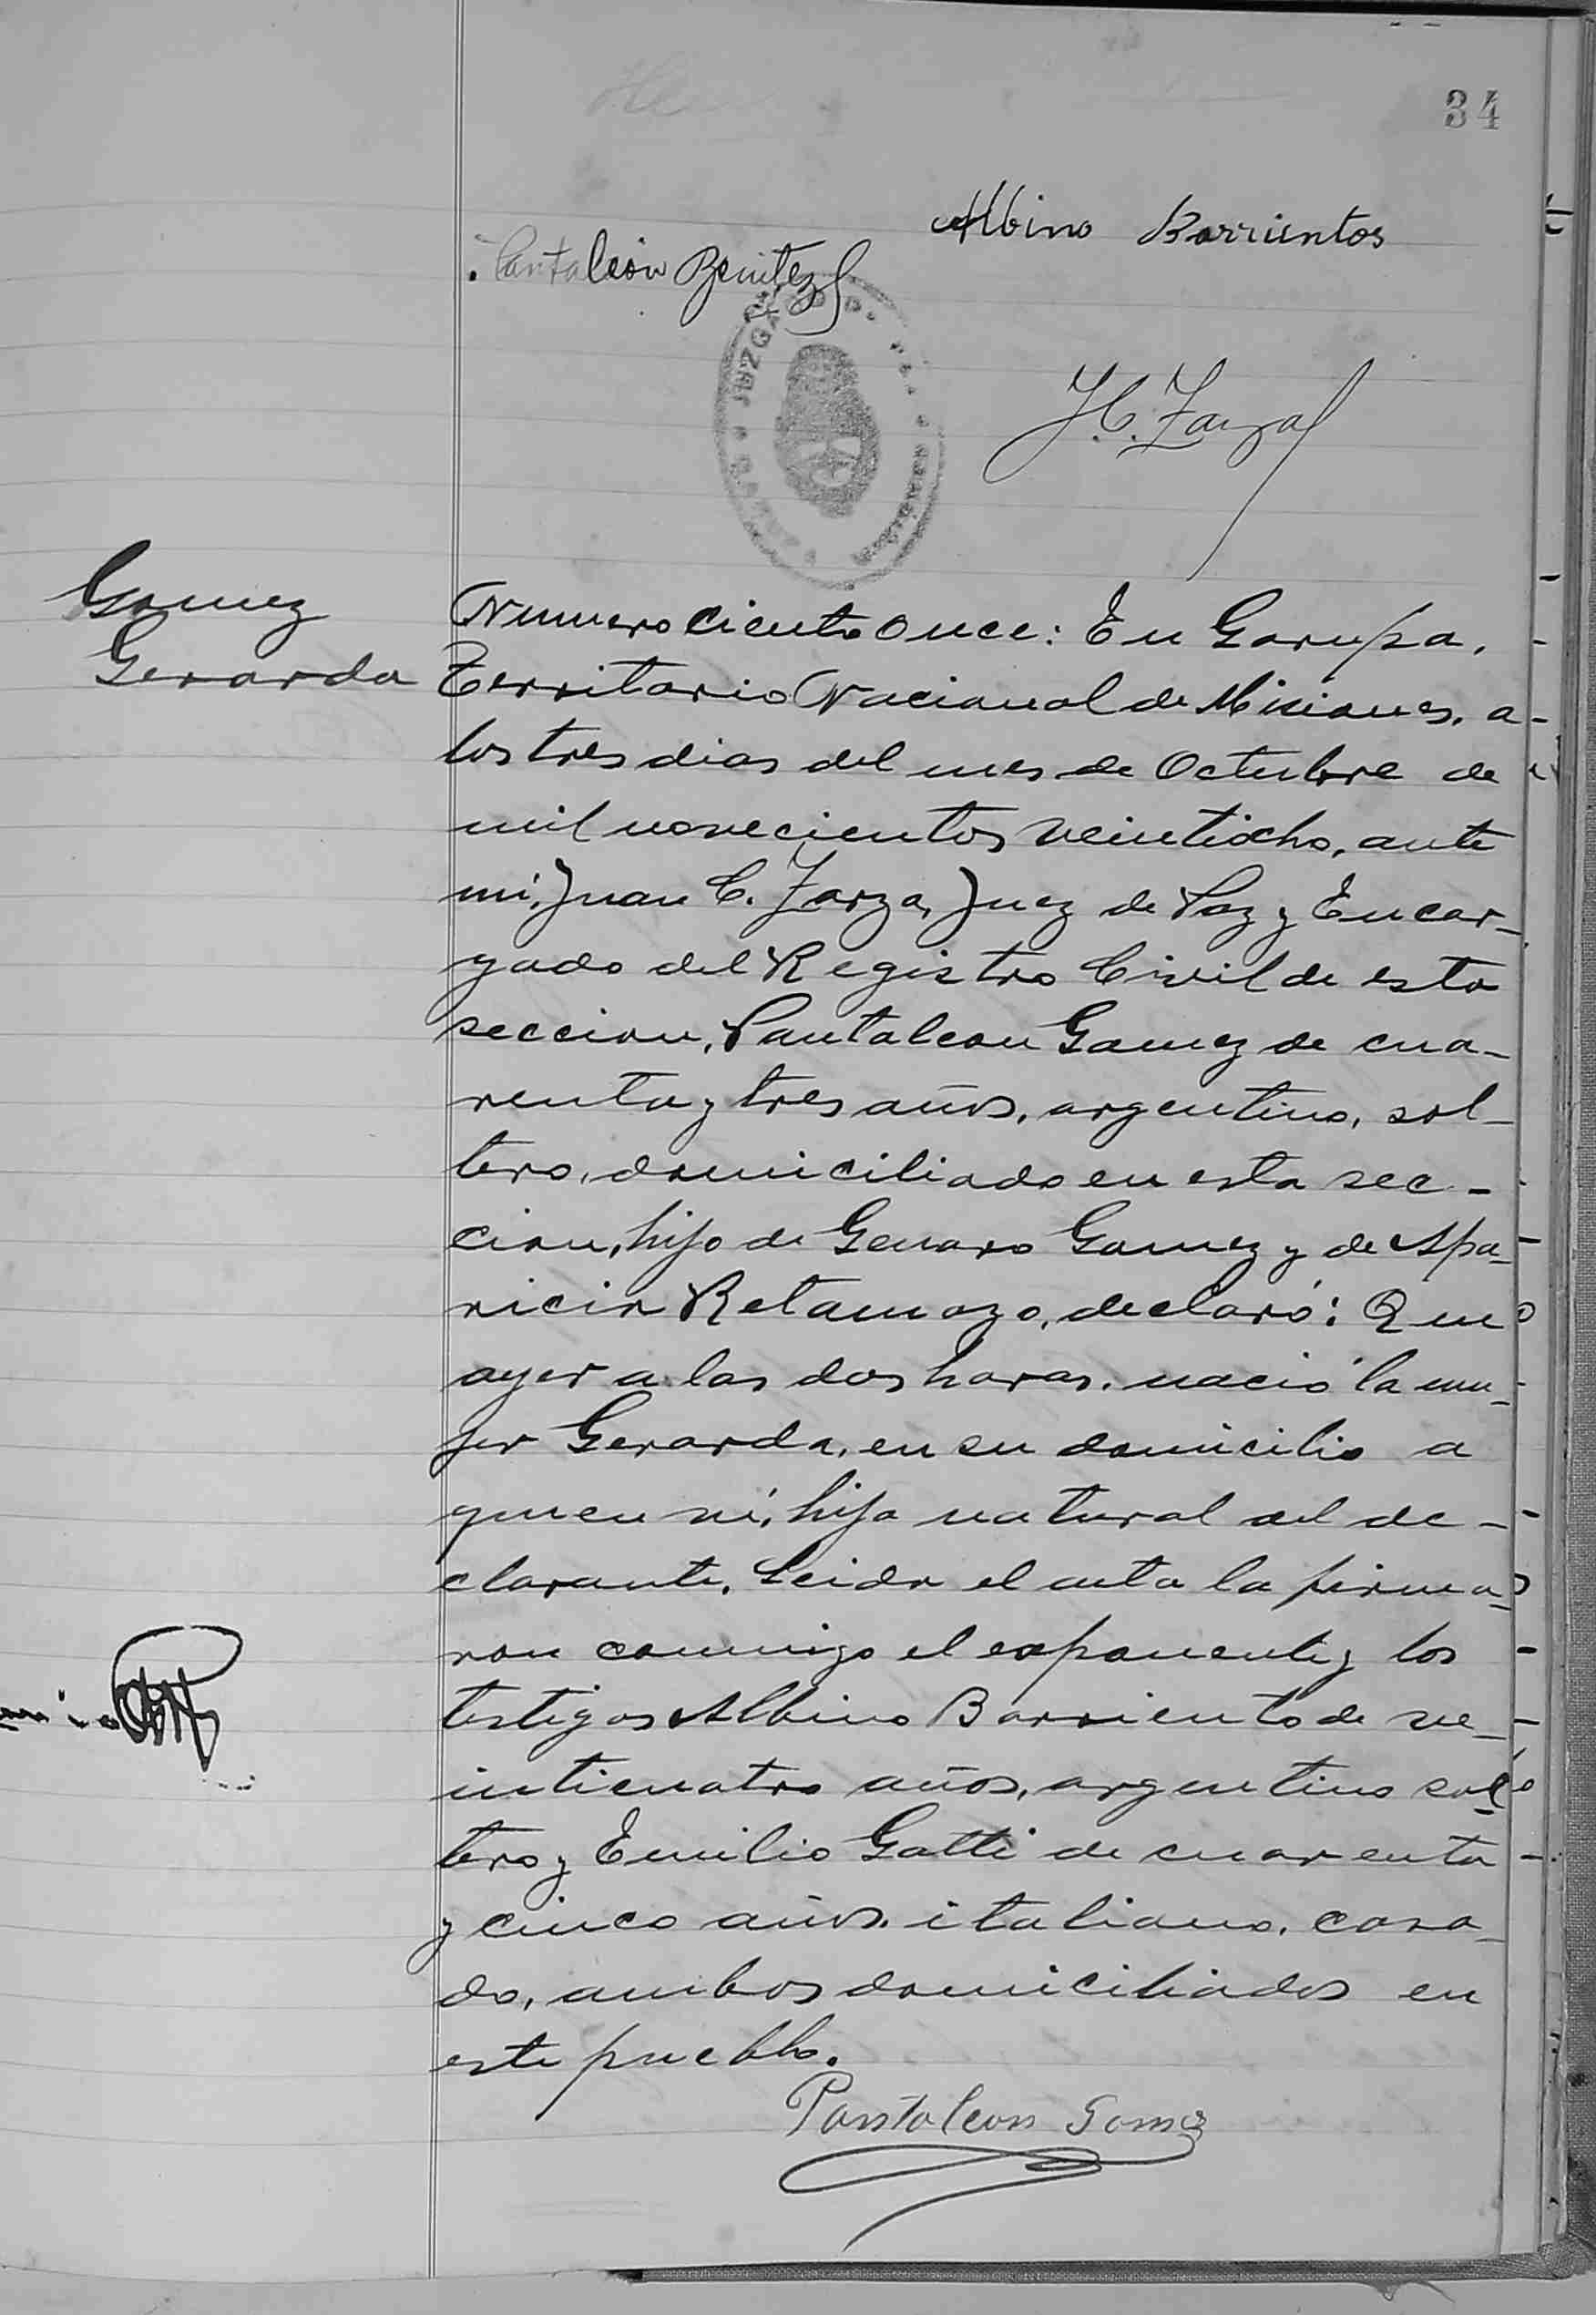 34
Albino Barrientos
Pantaleón Benitez
JUZGADO
J. C. Zarza
Gomez
Gerarda
Numero ciento once: En Garupa,
Territorio Nacional de Misiones, a
los tres dias del mes de Octubre de
mil novecientos veintiocho, ante
mi, Juan C. Zarza, Juez de Paz y Encar-
gado del Registro Civil de esta
seccion, Pantaleon Gomez de cua-
renta y tres años, argentino, sol-
tero, domiciliado en esta sec-
cion, hijo de Genaro Gomez y de Apa-
ricia Retamozo, declaró: Que
ayer a las dos horas, nació la mu-
jer Gerarda, en su domicilio a
quien ví, hija natural del de-
clarante. Leida el acta la firma-
ron conmigo el exponente y los
testigos Albino Barriento de ve-
inticuatro años, argentino sol-
tero y Emilio Gatti de cuarenta
y cinco años, italiano, casa-
do, ambos domiciliados en
este pueblo.
Pantaleon Gomez